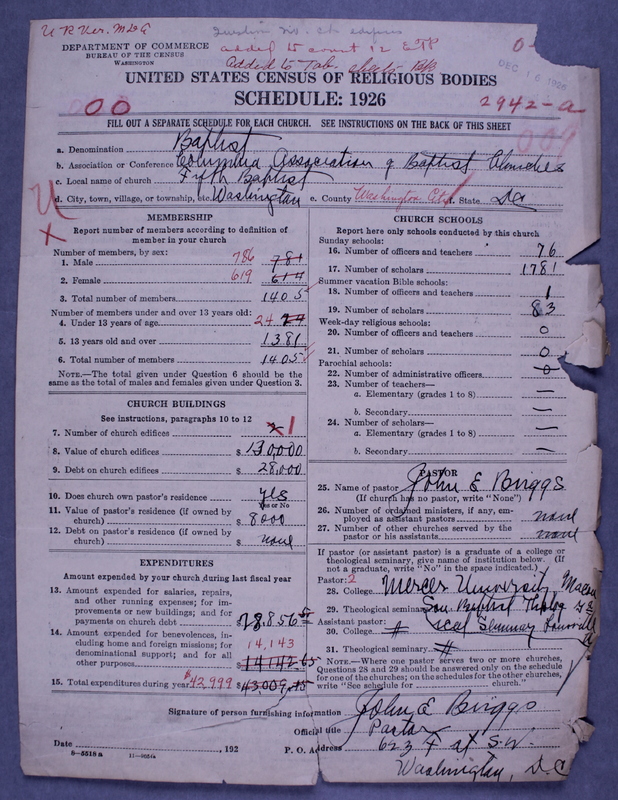 U R Ver. M&G
added to count 12 ETP
Added to Tab.
DEC 16 1926
DEPARTMENT OF COMMERCE
BUREAU OF THE CENSUS
WASHINGTON
UNITED STATES CENSUS OF RELIGIOUS BODIES
SCHEDULE: 1926
00
2942-a
009
FILL OUT A SEPARATE SCHEDULE FOR EACH CHURCH. SEE INSTRUCTIONS ON THE BACK OF THIS SHEET
a. Denomination Baptist
b. Association or Conference Columbia Association of Baptist Churches
c. Local name of church Fifth Baptist
d. City, town, village, or township, etc. Washington e. County Washington City f. State DC
MEMBERSHIP
Report number of members according to definition of member in your church
Number of members, by sex:
1. Male 786 781
2. Female 619 614
3. Total number of members 1405
Number of members under and over 13 years old:
4. Under 13 years of age 24 24
5. 13 years old and over 1381
6. Total number of members 1405
NOTE.—The total given under Question 6 should be the same as the total of males and females given under Question 3.
CHURCH BUILDINGS
See instructions, paragraphs 10 to 12
7. Number of church edifices 1
8. Value of church edifices $ 130,000
9. Debt on church edifices $ 28,000
10. Does church own pastor's residence yes
Yes or No
11. Value of pastor's residence (if owned by church) $ 8000
12. Debt on pastor's residence (if owned by church) $ none
EXPENDITURES
Amount expended by your church during last fiscal year
13. Amount expended for salaries, repairs, and other running expenses; for improvements or new buildings; and for payments on church debt $ 28,856
14. Amount expended for benevolences, including home and foreign missions; for denominational support; and for all other purposes 14,143 $ 14,142.65
15. Total expenditures during year $42,999 $ 43,009.15
CHURCH SCHOOLS
Report here only schools conducted by this church
Sunday schools:
16. Number of officers and teachers 76
17. Number of scholars 1781
Summer vacation Bible schools:
18. Number of officers and teachers 1
19. Number of scholars 83
Week-day religious schools:
20. Number of officers and teachers 0
21. Number of scholars 0
Parochial schools:
22. Number of administrative officers 0
23. Number of teachers—
a. Elementary (grades 1 to 8) —
b. Secondary —
24. Number of scholars—
a. Elementary (grades 1 to 8) —
b. Secondary —
PASTOR
25. Name of pastor John E Briggs
(If church has no pastor, write "None")
26. Number of ordained ministers, if any, employed as assistant pastors none
27. Number of other churches served by the pastor or his assistants none
If pastor (or assistant pastor) is a graduate of a college or theological seminary, give name of institution below. (If not a graduate, write "No" in the space indicated.)
Pastor: 2
28. College Mercer University Macon
29. Theological seminary Sou Baptist Theolog
Assistant pastor: ical Seminary Louisville
30. College #
31. Theological seminary #
NOTE.—Where one pastor serves two or more churches, Questions 28 and 29 should be answered only on the schedule for one of the churches; on the schedules for the other churches, write "See schedule for church."
Signature of person furnishing information John E Briggs
Official title Pastor
Date , 192 P. O. Address 623 F st S.W.
8—5518a 11—9654a Washington, D.C